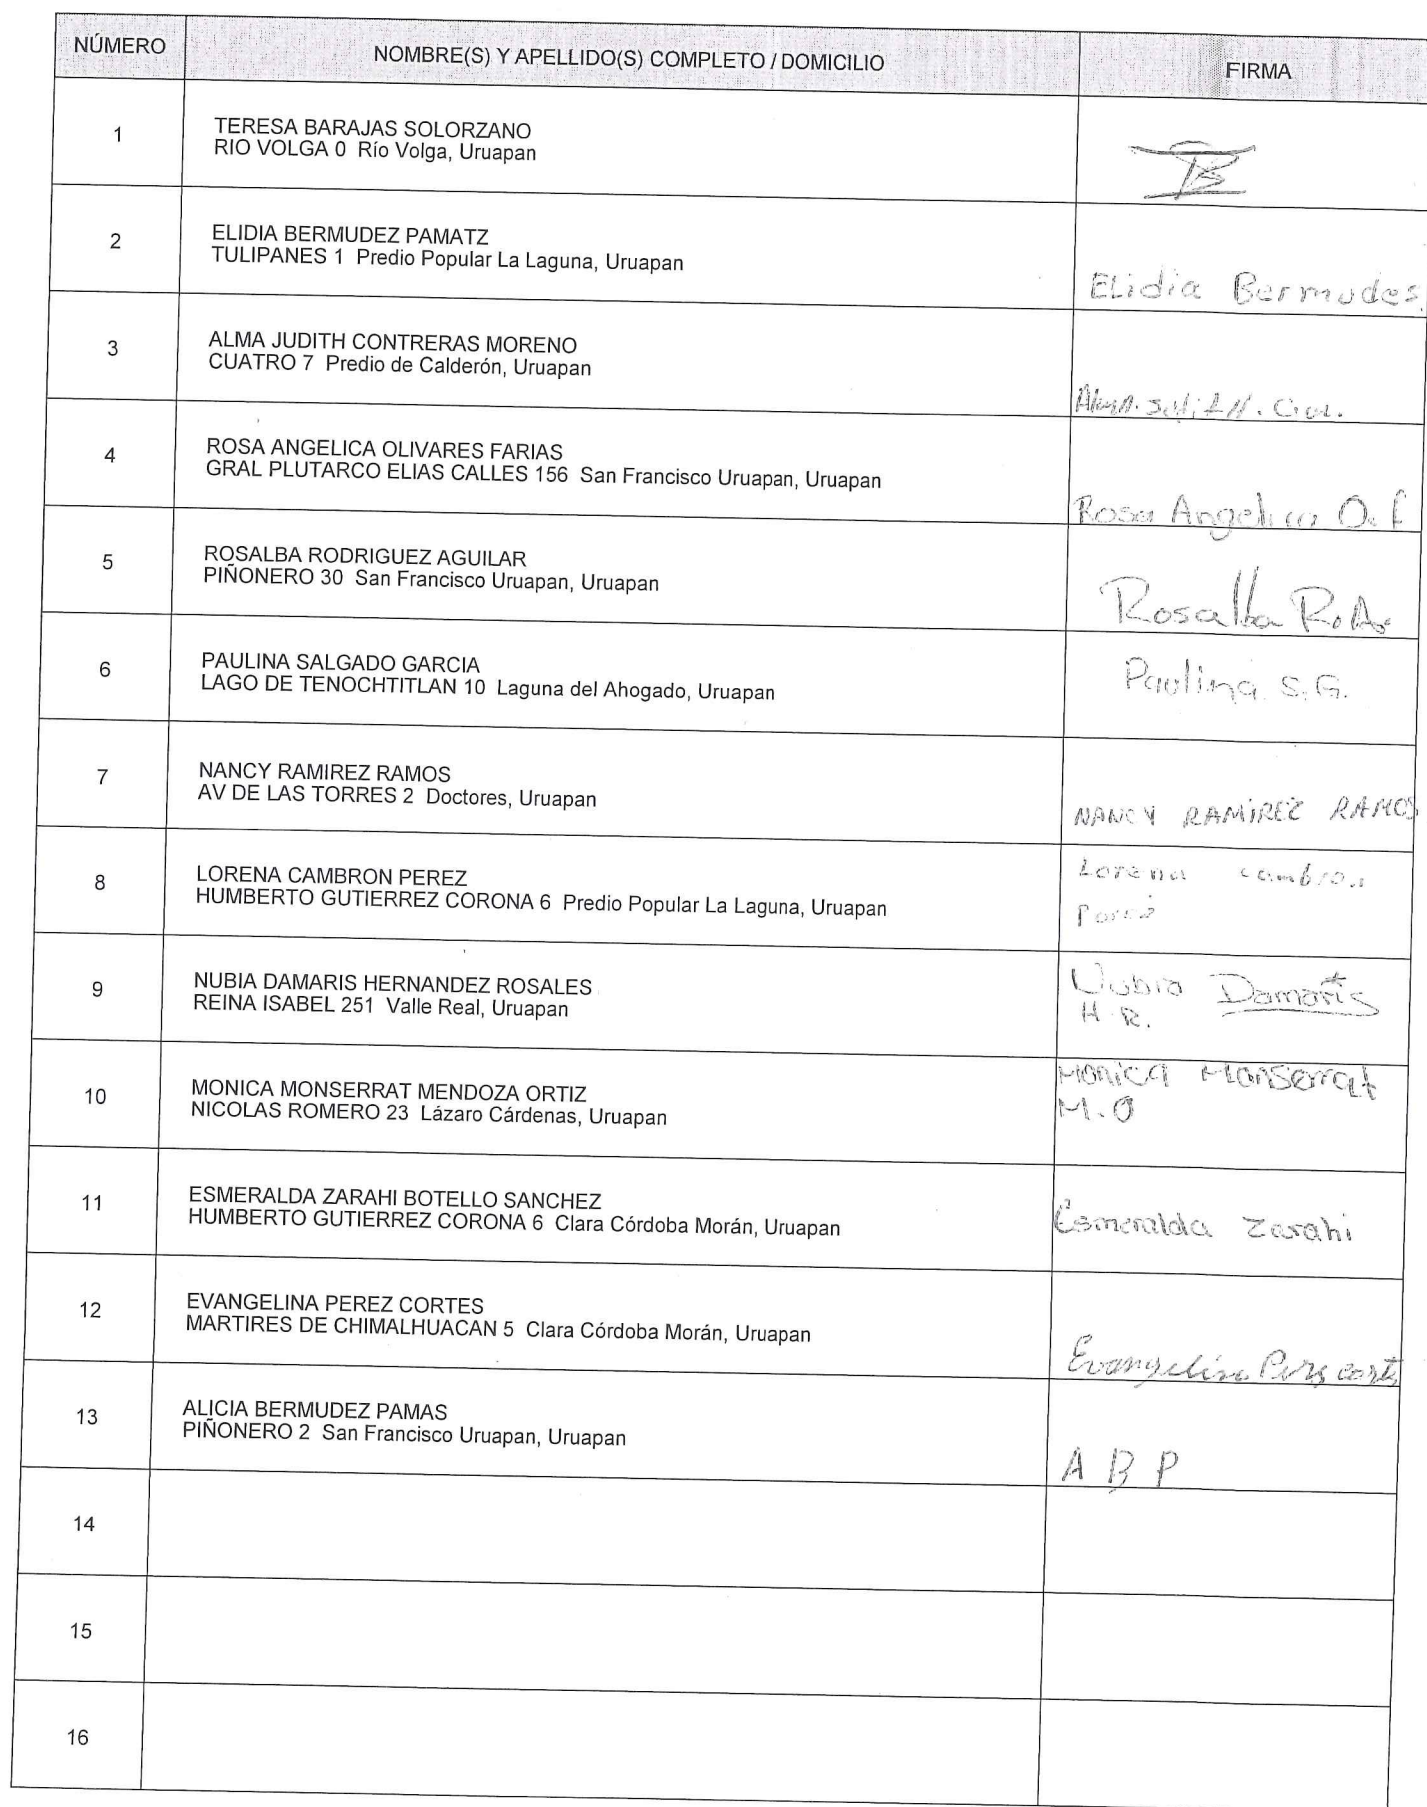 NÚMERO
NOMBRE(S) Y APELLIDO(S) COMPLETO / DOMICILIO
FIRMA
1
TERESA BARAJAS SOLORZANO
RIO VOLGA 0 Río Volga, Uruapan
2
ELIDIA BERMUDEZ PAMATZ
TULIPANES 1 Predio Popular La Laguna, Uruapan
ELidia Bermudes
3
ALMA JUDITH CONTRERAS MORENO
CUATRO 7 Predio de Calderón, Uruapan
4
ROSA ANGELICA OLIVARES FARIAS
GRAL PLUTARCO ELIAS CALLES 156 San Francisco Uruapan, Uruapan
Rosa Angelica O. f
5
ROSALBA RODRIGUEZ AGUILAR
PIÑONERO 30 San Francisco Uruapan, Uruapan
Rosalba R.A.
6
PAULINA SALGADO GARCIA
LAGO DE TENOCHTITLAN 10 Laguna del Ahogado, Uruapan
Paulina S.G.
7
NANCY RAMIREZ RAMOS
AV DE LAS TORRES 2 Doctores, Uruapan
NANCY RAMÍREZ RAMOS
8
LORENA CAMBRON PEREZ
HUMBERTO GUTIERREZ CORONA 6 Predio Popular La Laguna, Uruapan
Lorena cambron
9
NUBIA DAMARIS HERNANDEZ ROSALES
REINA ISABEL 251 Valle Real, Uruapan
Nubia Damaris
H.R.
10
MONICA MONSERRAT MENDOZA ORTIZ
NICOLAS ROMERO 23 Lázaro Cárdenas, Uruapan
Monica Monserrat
M.O
11
ESMERALDA ZARAHI BOTELLO SANCHEZ
HUMBERTO GUTIERREZ CORONA 6 Clara Córdoba Morán, Uruapan
Esmeralda Zarahi
12
EVANGELINA PEREZ CORTES
MARTIRES DE CHIMALHUACAN 5 Clara Córdoba Morán, Uruapan
Evangelina
13
ALICIA BERMUDEZ PAMAS
PIÑONERO 2 San Francisco Uruapan, Uruapan
A B P
14
15
16